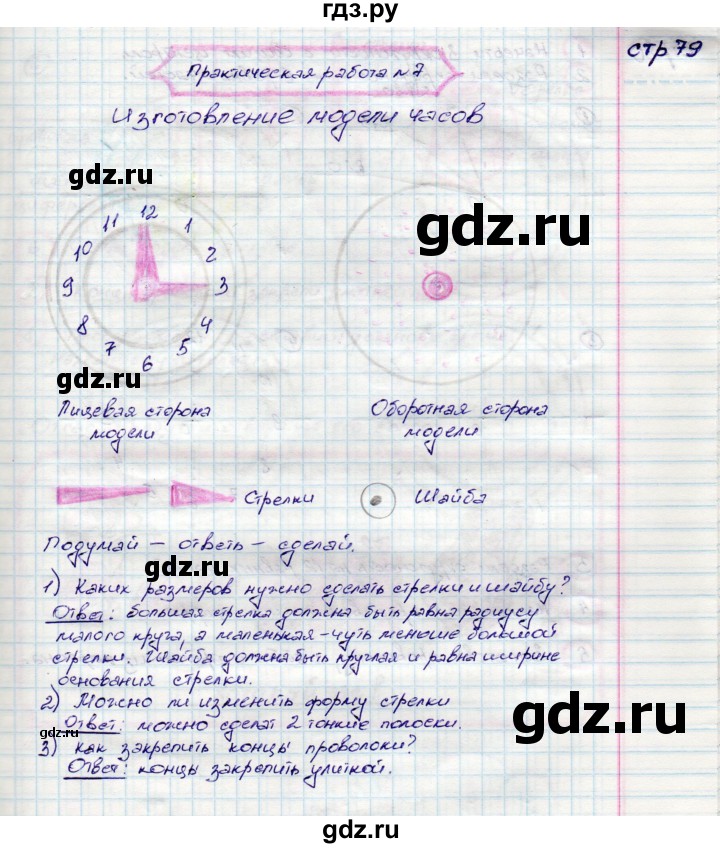 гдз.ру
стр 79
Практическая работа №7
Изготовление модели часов
gdz.ru
gdz.ru
12
11 1
10 2
9 3
8 4
7 5
6
gdz.ru
Лицевая сторона
модели
Оборотная сторона
модели
gdz.ru
Стрелки
Шайба
Подумай – ответь – сделай.
gdz.ru
1) Каких размеров нужно сделать стрелки и шайбу?
Ответ: большая стрелка должна быть равна радиусу
малого круга, а маленькая – чуть меньше большой
стрелки. Шайба должна быть круглая и равна ширине
основания стрелки.
2) Можно ли изменить форму стрелки
Ответ: можно сделат 2 тонкие полоски.
gdz.ru
3) как закрепить концы проволоки?
Ответ: концы закрепить улиткой.
gdz.ru
gdz.ru